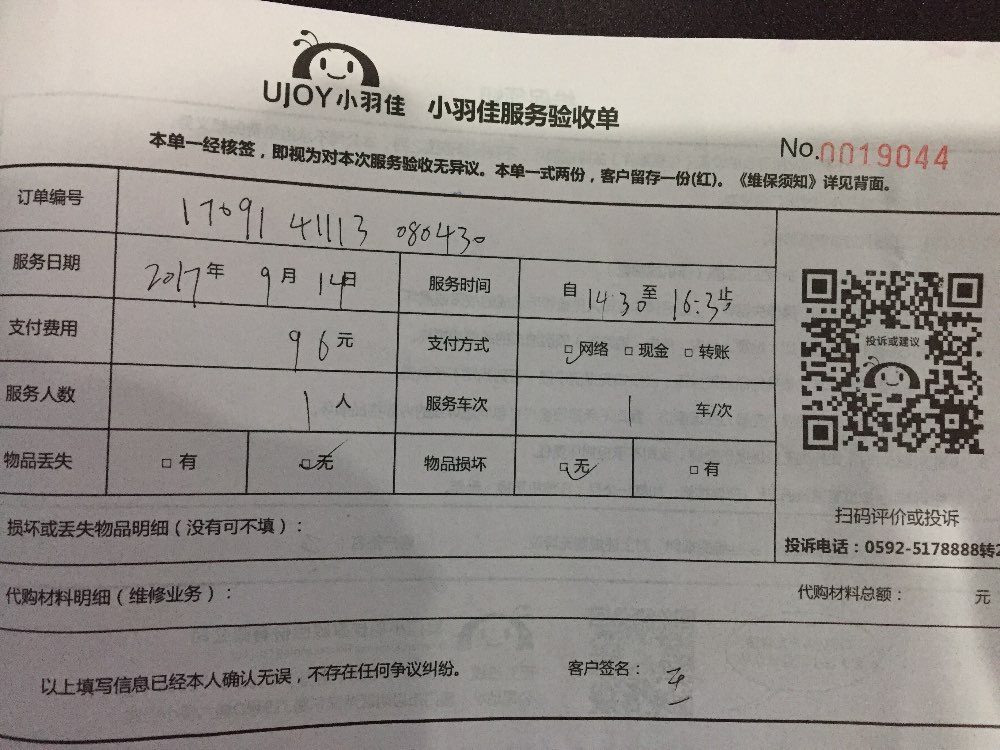 UJOY小羽佳 小羽佳服务验收单
No.0019044
本单一经核签，即视为对本次服务验收无异议。本单一式两份，客户留存一份(红)。《维保须知》详见背面。
订单编号 1709141113080430
服务日期 2017年 9月 14日 服务时间 自 14:30 至 16:3 止
支付费用 96元 支付方式 □网络 □现金 □转账
服务人数 1人 服务车次 1 车/次
物品丢失 □有 □无 物品损坏 □无 □有
投诉或建议
扫码评价或投诉
投诉电话：0592-5178888转2
损坏或丢失物品明细（没有可不填）：
代购材料明细（维修业务）： 代购材料总额： 元
以上填写信息已经本人确认无误，不存在任何争议纠纷。 客户签名：